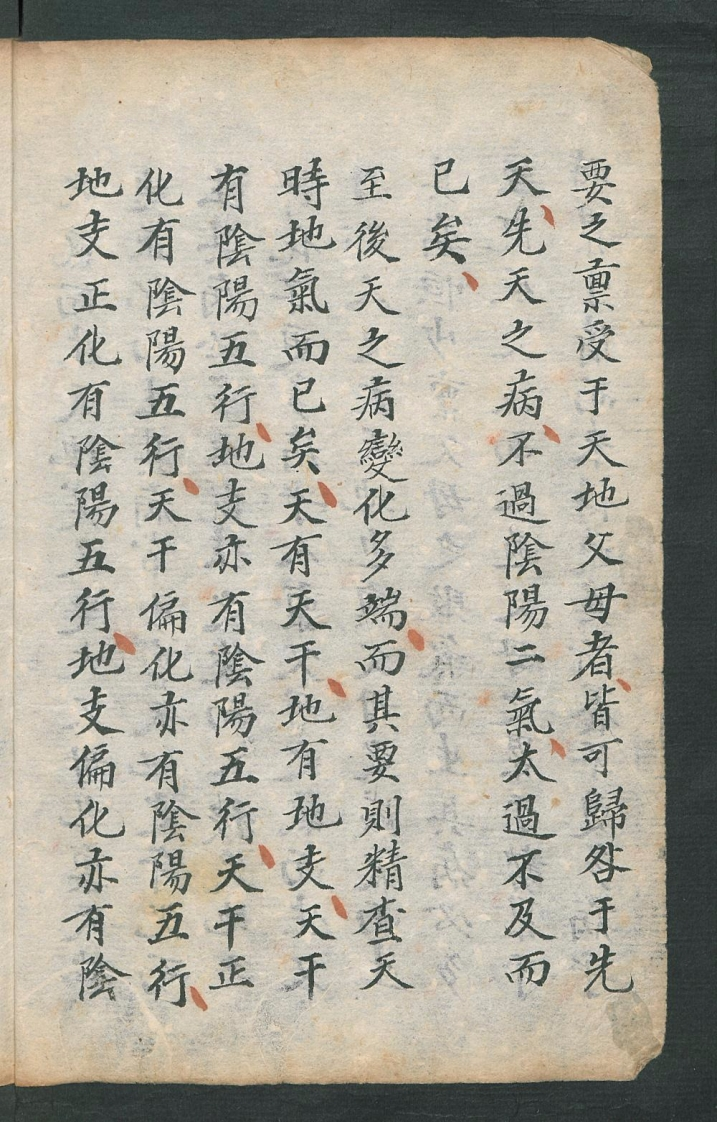 要之禀受于天地父母者皆可歸咎于先
天先天之病不過陰陽二氣太過不及而
已矣
至後天之病變化多端而其要則精查天
時地氣而已矣天有天干地有地支天干
有陰陽五行地支亦有陰陽五行天干正
化有陰陽五行天干偏化亦有陰陽五行
地支正化有陰陽五行地支偏化亦有陰